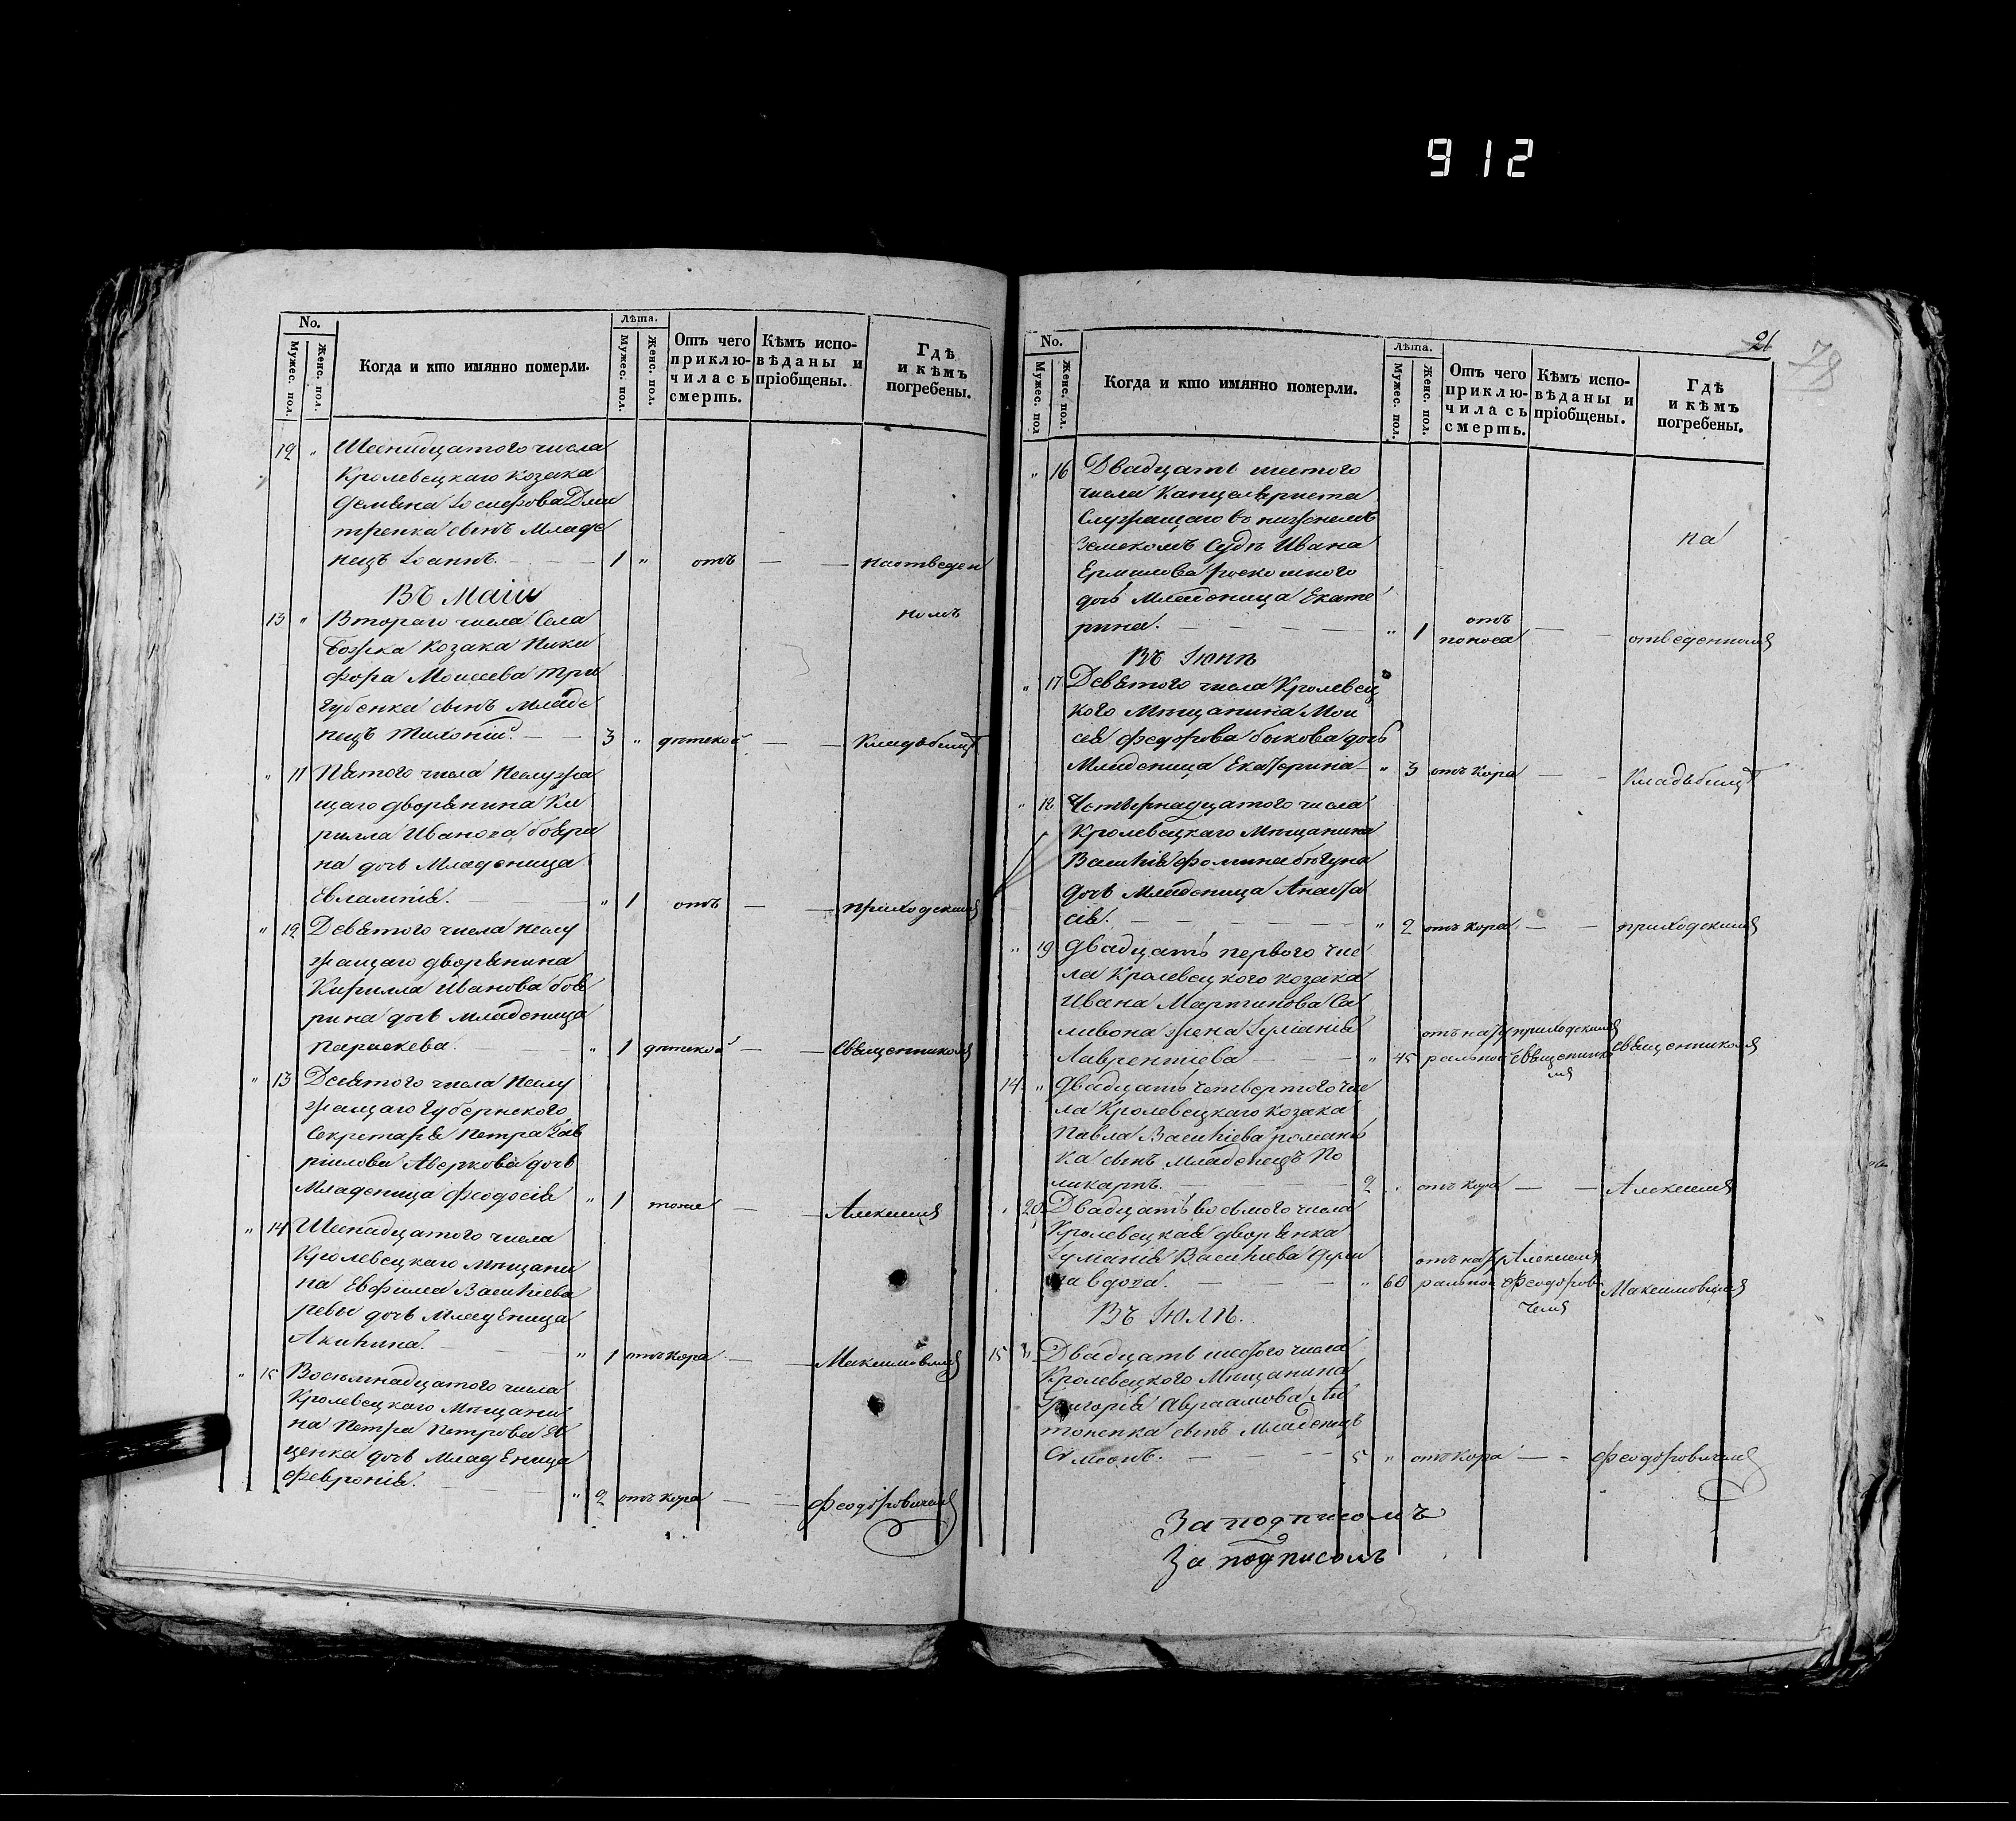 912
No.
Мужес. пол.
Женс. пол.
Когда и кто имянно померли.
Лѣта.
Мужес. пол.
Женс. пол.
Отъ чего приклю-чилась смерть.
Кѣмъ испо-вѣданы и пріобщены.
Гдѣ и кѣмъ погребены.
12 „ Шеснадцатого числа
Кролевецкаго Козака
Демяна Іосифова Дми
тренка сынъ Младе
нецъ Іоаннъ. — 1 „ отъ — — на отведен
Въ Маіи
номъ
13 „ Втораго числа Села
Божка Козака Ники
фора Моисеева Три
губенка сынъ Младе
нецъ — 3 „ дѣтской — — Кладъбищѣ
„ 11 Пятого числа Неслужа
щаго дворянина Ки
рилла Иванова Бояри
на дочь Младеница
Евлампія. — „ 1 отъ — — приходскимъ
„ 12 Девятого числа Неслу
жащаго дворянина
Кирилла Иванова Боя
рина дочь Младеница
Параскева. — „ 1 дѣтской — — Священникомъ
„ 13 Девятого числа Неслу
жащаго Губернского
Секретаря Петра Гав
рилова Аверкова дочь
Младеница Феодосія „ 1 тоже — — Алексіемъ
„ 14 Шеснадцатого числа
Кролевецкаго Мѣщани
на Евфима Василіева
дочь Младеница
Акилина. — „ 1 отъ кора — — Максимовымъ
„ 15 Восемнадцатого числа
Кролевецкаго Мѣщани
на Петра Петрова Я
ценка дочь Младеница
Февронія. — „ 2 отъ кора — — Феодоровичемъ
21
78
No.
Мужес. пол
Женс. пол.
Когда и кто имянно померли.
Лѣта.
Мужес. пол.
Женс. пол.
Отъ чего приклю-чилась смерть.
Кѣмъ испо-вѣданы и пріобщены.
Гдѣ и кѣмъ погребены.
„ 16 Двадцать шестого
числа Канцеляриста
Служащаго въ нижнемъ
Земскомъ Судѣ Ивана на
Ермилова Роскошного
дочь Младеница Екате
рина. — „ 1 отъ поноса — — отведенномъ
Въ Іюнѣ
„ 17 Девятого числа Кролевец
кого Мѣщанина Мои
сея Федорова Быкова дочь
Младеница Екатерина — „ 3 отъ кора — — Кладъбищѣ
„ 18 Четвернадцатого числа
Кролевецкаго Мѣщанина
Василія Фомина Бѣгуна
дочь Младеница Анаста
сія. — „ 2 отъ кора — — приходскимъ
„ 19 Двадцать первого чис
ла Кролевецкого козака
Ивана Мартинова Са
ливона жена Іуліанія
Лаврентіева — „ 45 отъ нату ральной приходскимъ священнико мъ Священникомъ
14 „ Двадцать четвертого чис
ла Кролевецкаго козака
Павла Василіева Романь
ка сынъ Младенецъ По
ликарпъ. — 2 „ отъ кора — — Алексіемъ
„ 20 Двадцать восьмого числа
Кролевецкая дворянка
Іуліанія Василіева
вдова. — „ 60 отъ нату ральной Алексіемъ Феодорови чемъ Максимовымъ
Въ Іюлѣ.
15 „ Двадцать шестого числа
Кролевецкого Мѣщанина
Григорія Авраамова
сынъ Младенецъ
— 5 „ отъ кора — — Феодоровичемъ
За подписомъ
За подписомъ